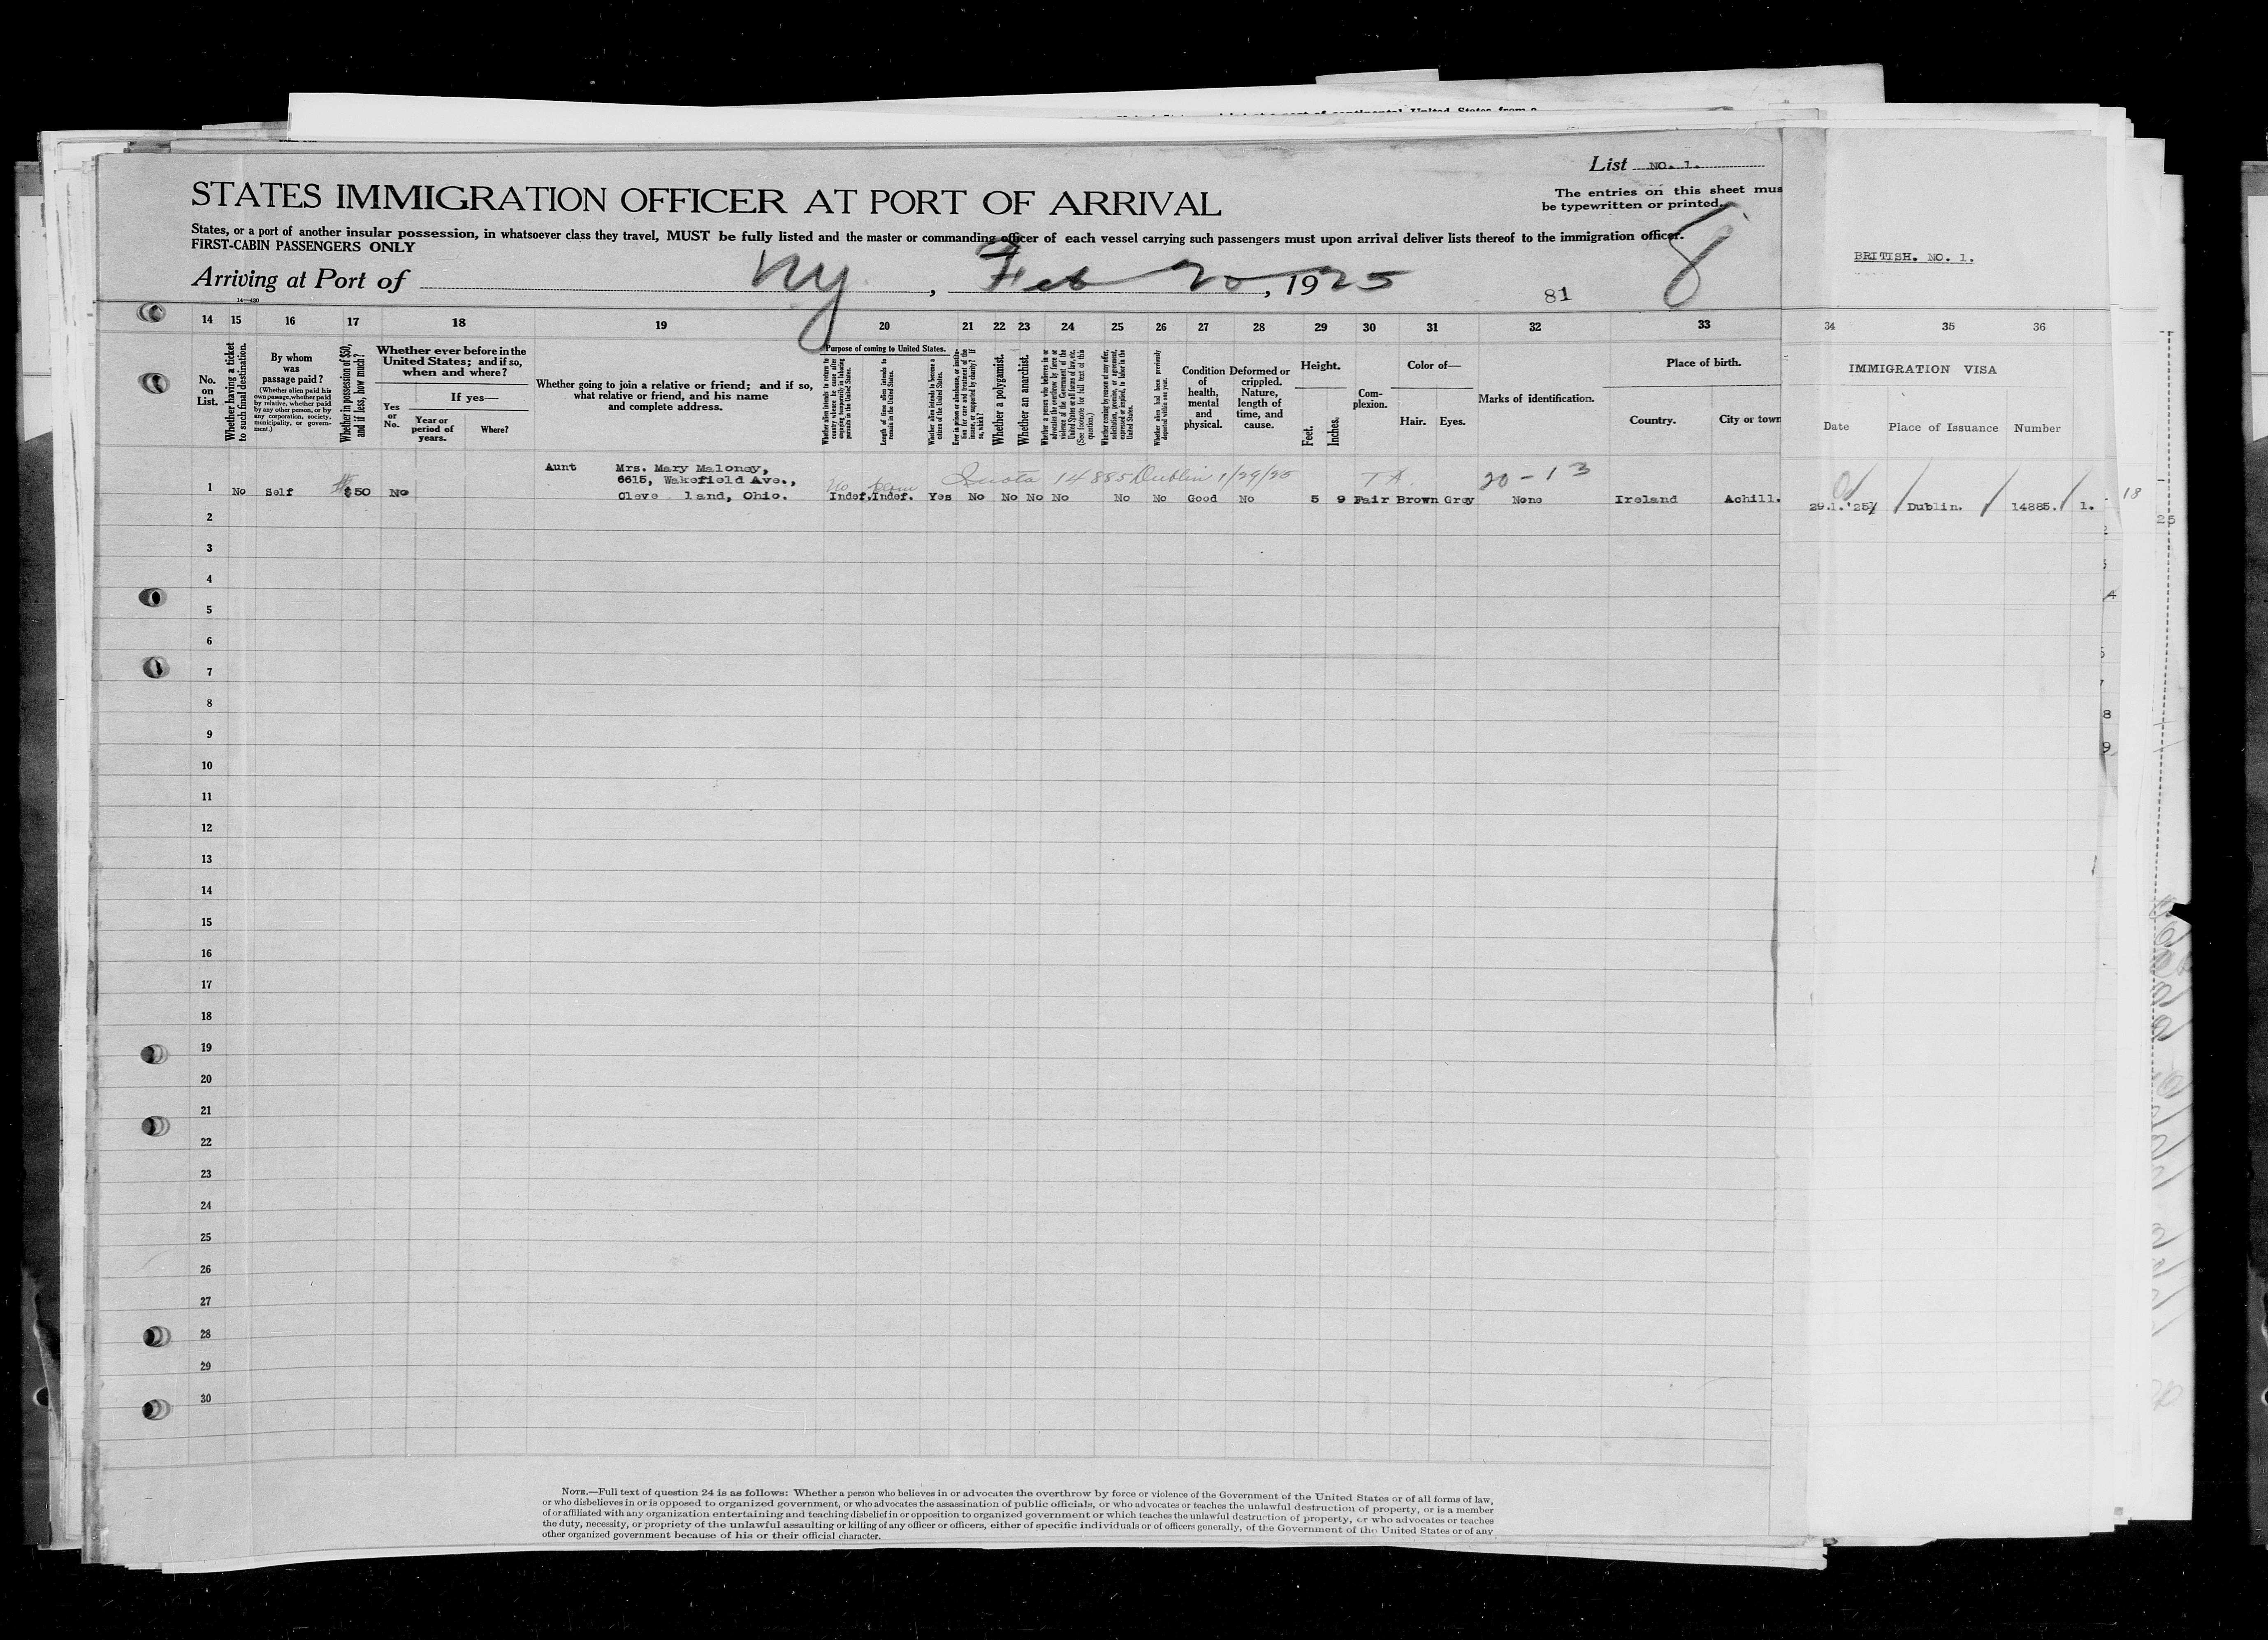 List NO. 1.
STATES IMMIGRATION OFFICER AT PORT OF ARRIVAL
The entries on this sheet mus
be typewritten or printed.
States, or a port of another insular possession, in whatsoever class they travel, MUST be fully listed and the master or commanding officer of each vessel carrying such passengers must upon arrival deliver lists thereof to the immigration officer.
FIRST-CABIN PASSENGERS ONLY
8
BRITISH. NO. 1.
Arriving at Port of NY, Feb 20, 1925
14—430
81
14 15 16 17 18 19 20 21 22 23 24 25 26 27 28 29 30 31 32 33 34 35 36
No. on List.
Whether having a ticket to such final destination.
By whom was passage paid?
(Whether alien paid his own passage, whether paid by relative, whether paid by any other person, or by any corporation, society, municipality, or government.)
Whether in possession of $50, and if less, how much?
Whether ever before in the United States; and if so, when and where?
Yes or No.
If yes—
Year or period of years.
Where?
Whether going to join a relative or friend; and if so, what relative or friend, and his name and complete address.
Purpose of coming to United States.
Whether alien intends to return to country whence he came after engaging temporarily in laboring pursuits in the United States.
Length of time alien intends to remain in the United States.
Whether alien intends to become a citizen of the United States.
Ever in prison or almshouse, or institution for care and treatment of the insane, or supported by charity? If so, which?
Whether a polygamist.
Whether an anarchist.
Whether a person who believes in or advocates the overthrow by force or violence of the Government of the United States or all forms of law, etc. (See footnote for full text of this question.)
Whether coming by reason of any offer, solicitation, promise, or agreement, expressed or implied, to labor in the United States.
Whether alien had been previously deported within one year.
Condition of health, mental and physical.
Deformed or crippled. Nature, length of time, and cause.
Height.
Feet. Inches.
Complexion.
Color of—
Hair. Eyes.
Marks of identification.
Place of birth.
Country. City or town
IMMIGRATION VISA
Date Place of Issuance Number
Aunt Mrs. Mary Maloney,
6615, Wakefield Ave.,
Cleve land, Ohio.
Quota 14885 Dublin 1/29/25 TA. 20-13
No
1 No Self $50 No Indef. Indef. Yes No No No No No No Good No 5 9 Fair Brown Grey None Ireland Achill. 29.1.'25 Dublin. 14885. 1.
18
25
2
3
4
5
6
7
8
9
10
11
12
13
14
15
16
17
18
19
20
21
22
23
24
25
26
27
28
29
30
NOTE.—Full text of question 24 is as follows: Whether a person who believes in or advocates the overthrow by force or violence of the Government of the United States or of all forms of law,
or who disbelieves in or is opposed to organized government, or who advocates the assassination of public officials, or who advocates or teaches the unlawful destruction of property, or is a member
of or affiliated with any organization entertaining and teaching disbelief in or opposition to organized government or which teaches the unlawful destruction of property, or who advocates or teaches
the duty, necessity, or propriety of the unlawful assaulting or killing of any officer or officers, either of specific individuals or of officers generally, of the Government of the United States or of any
other organized government because of his or their official character.